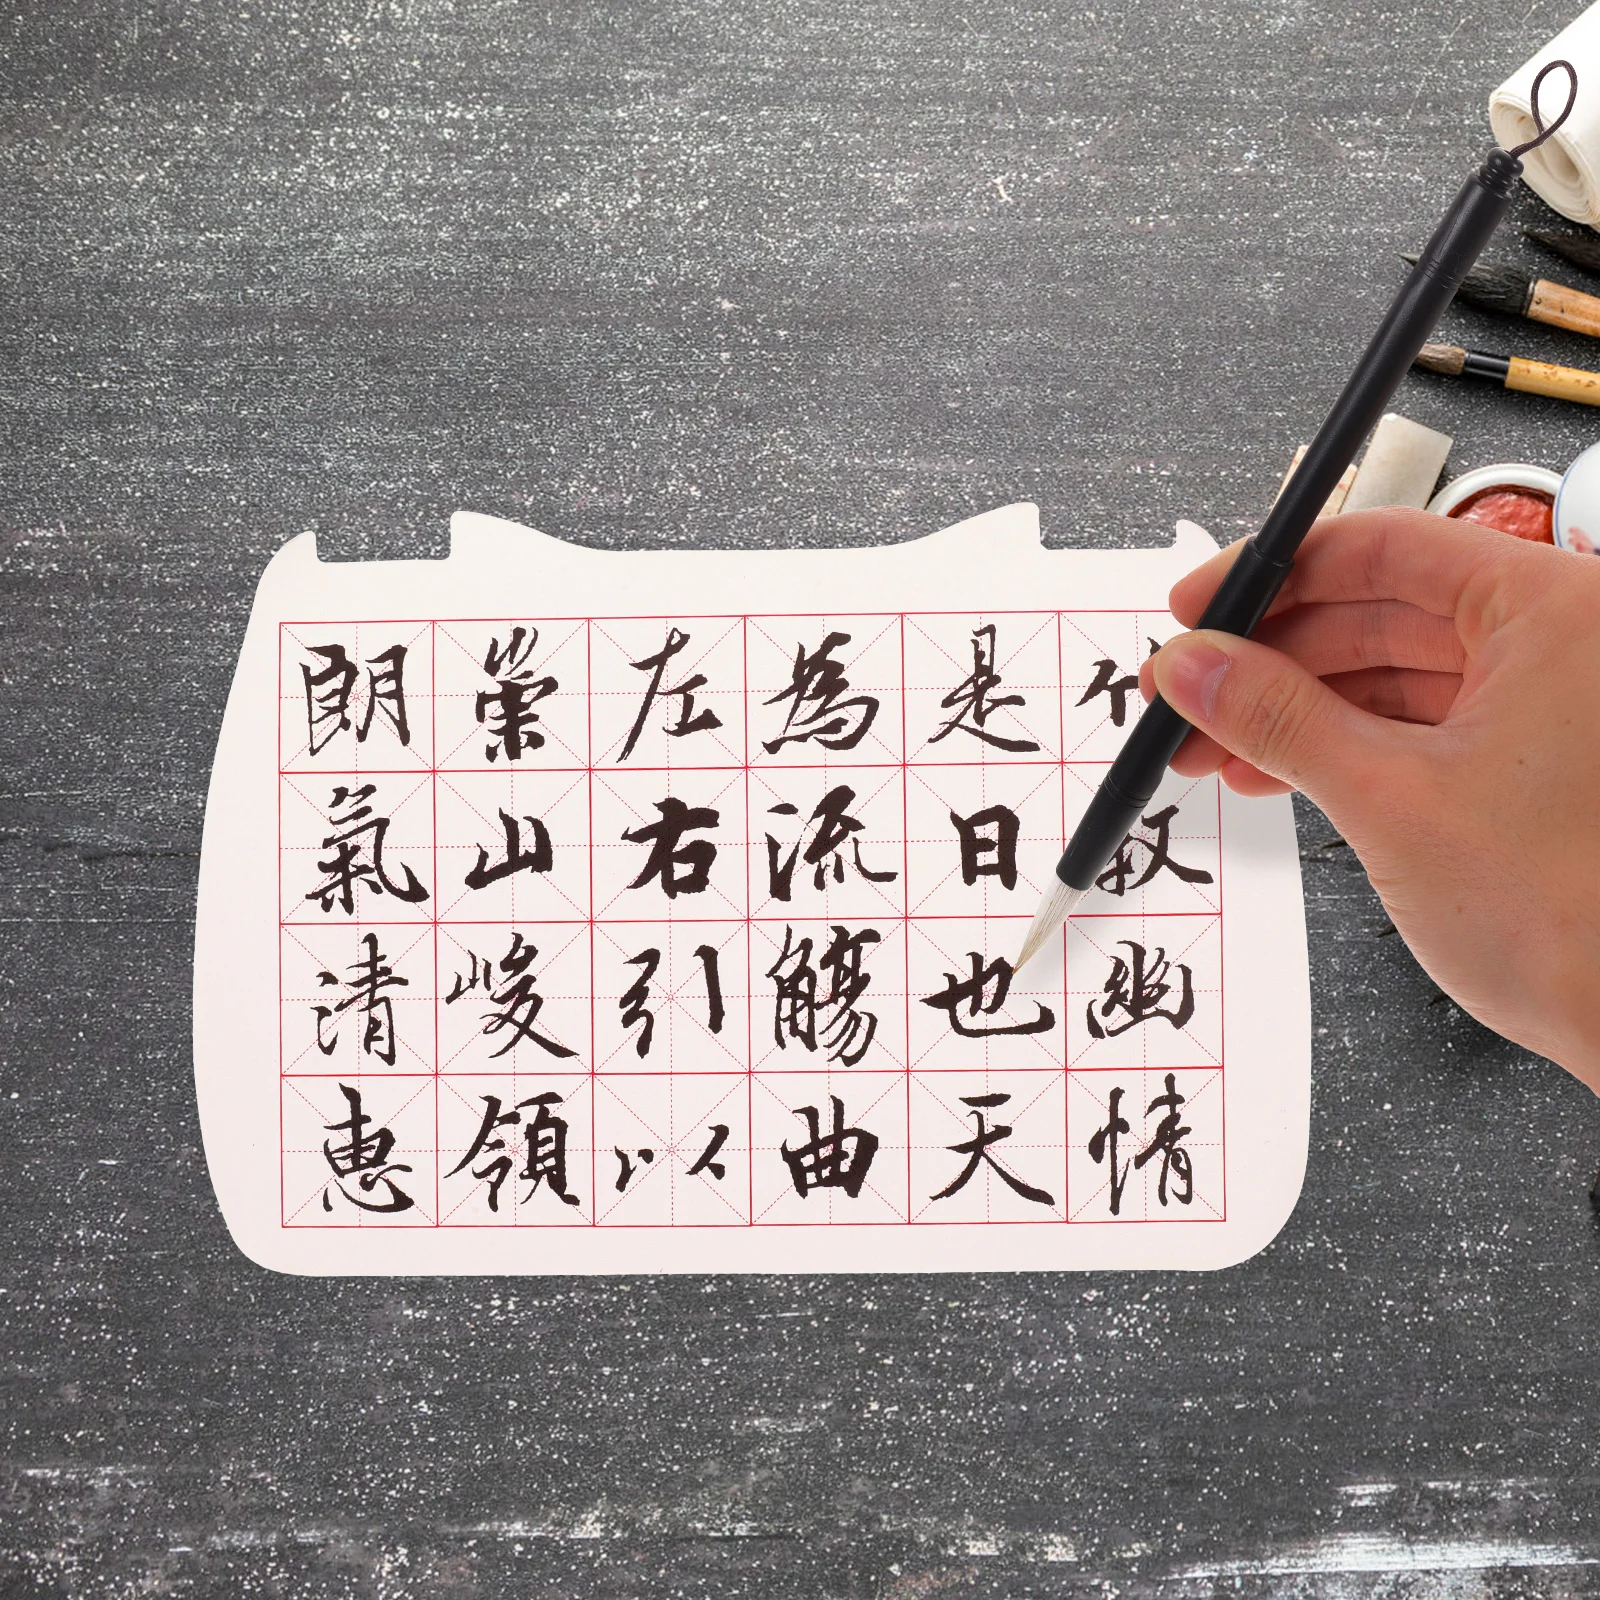 叙幽情
是日也天
為流觴曲
左右引以
崇山峻領
朗氣清惠